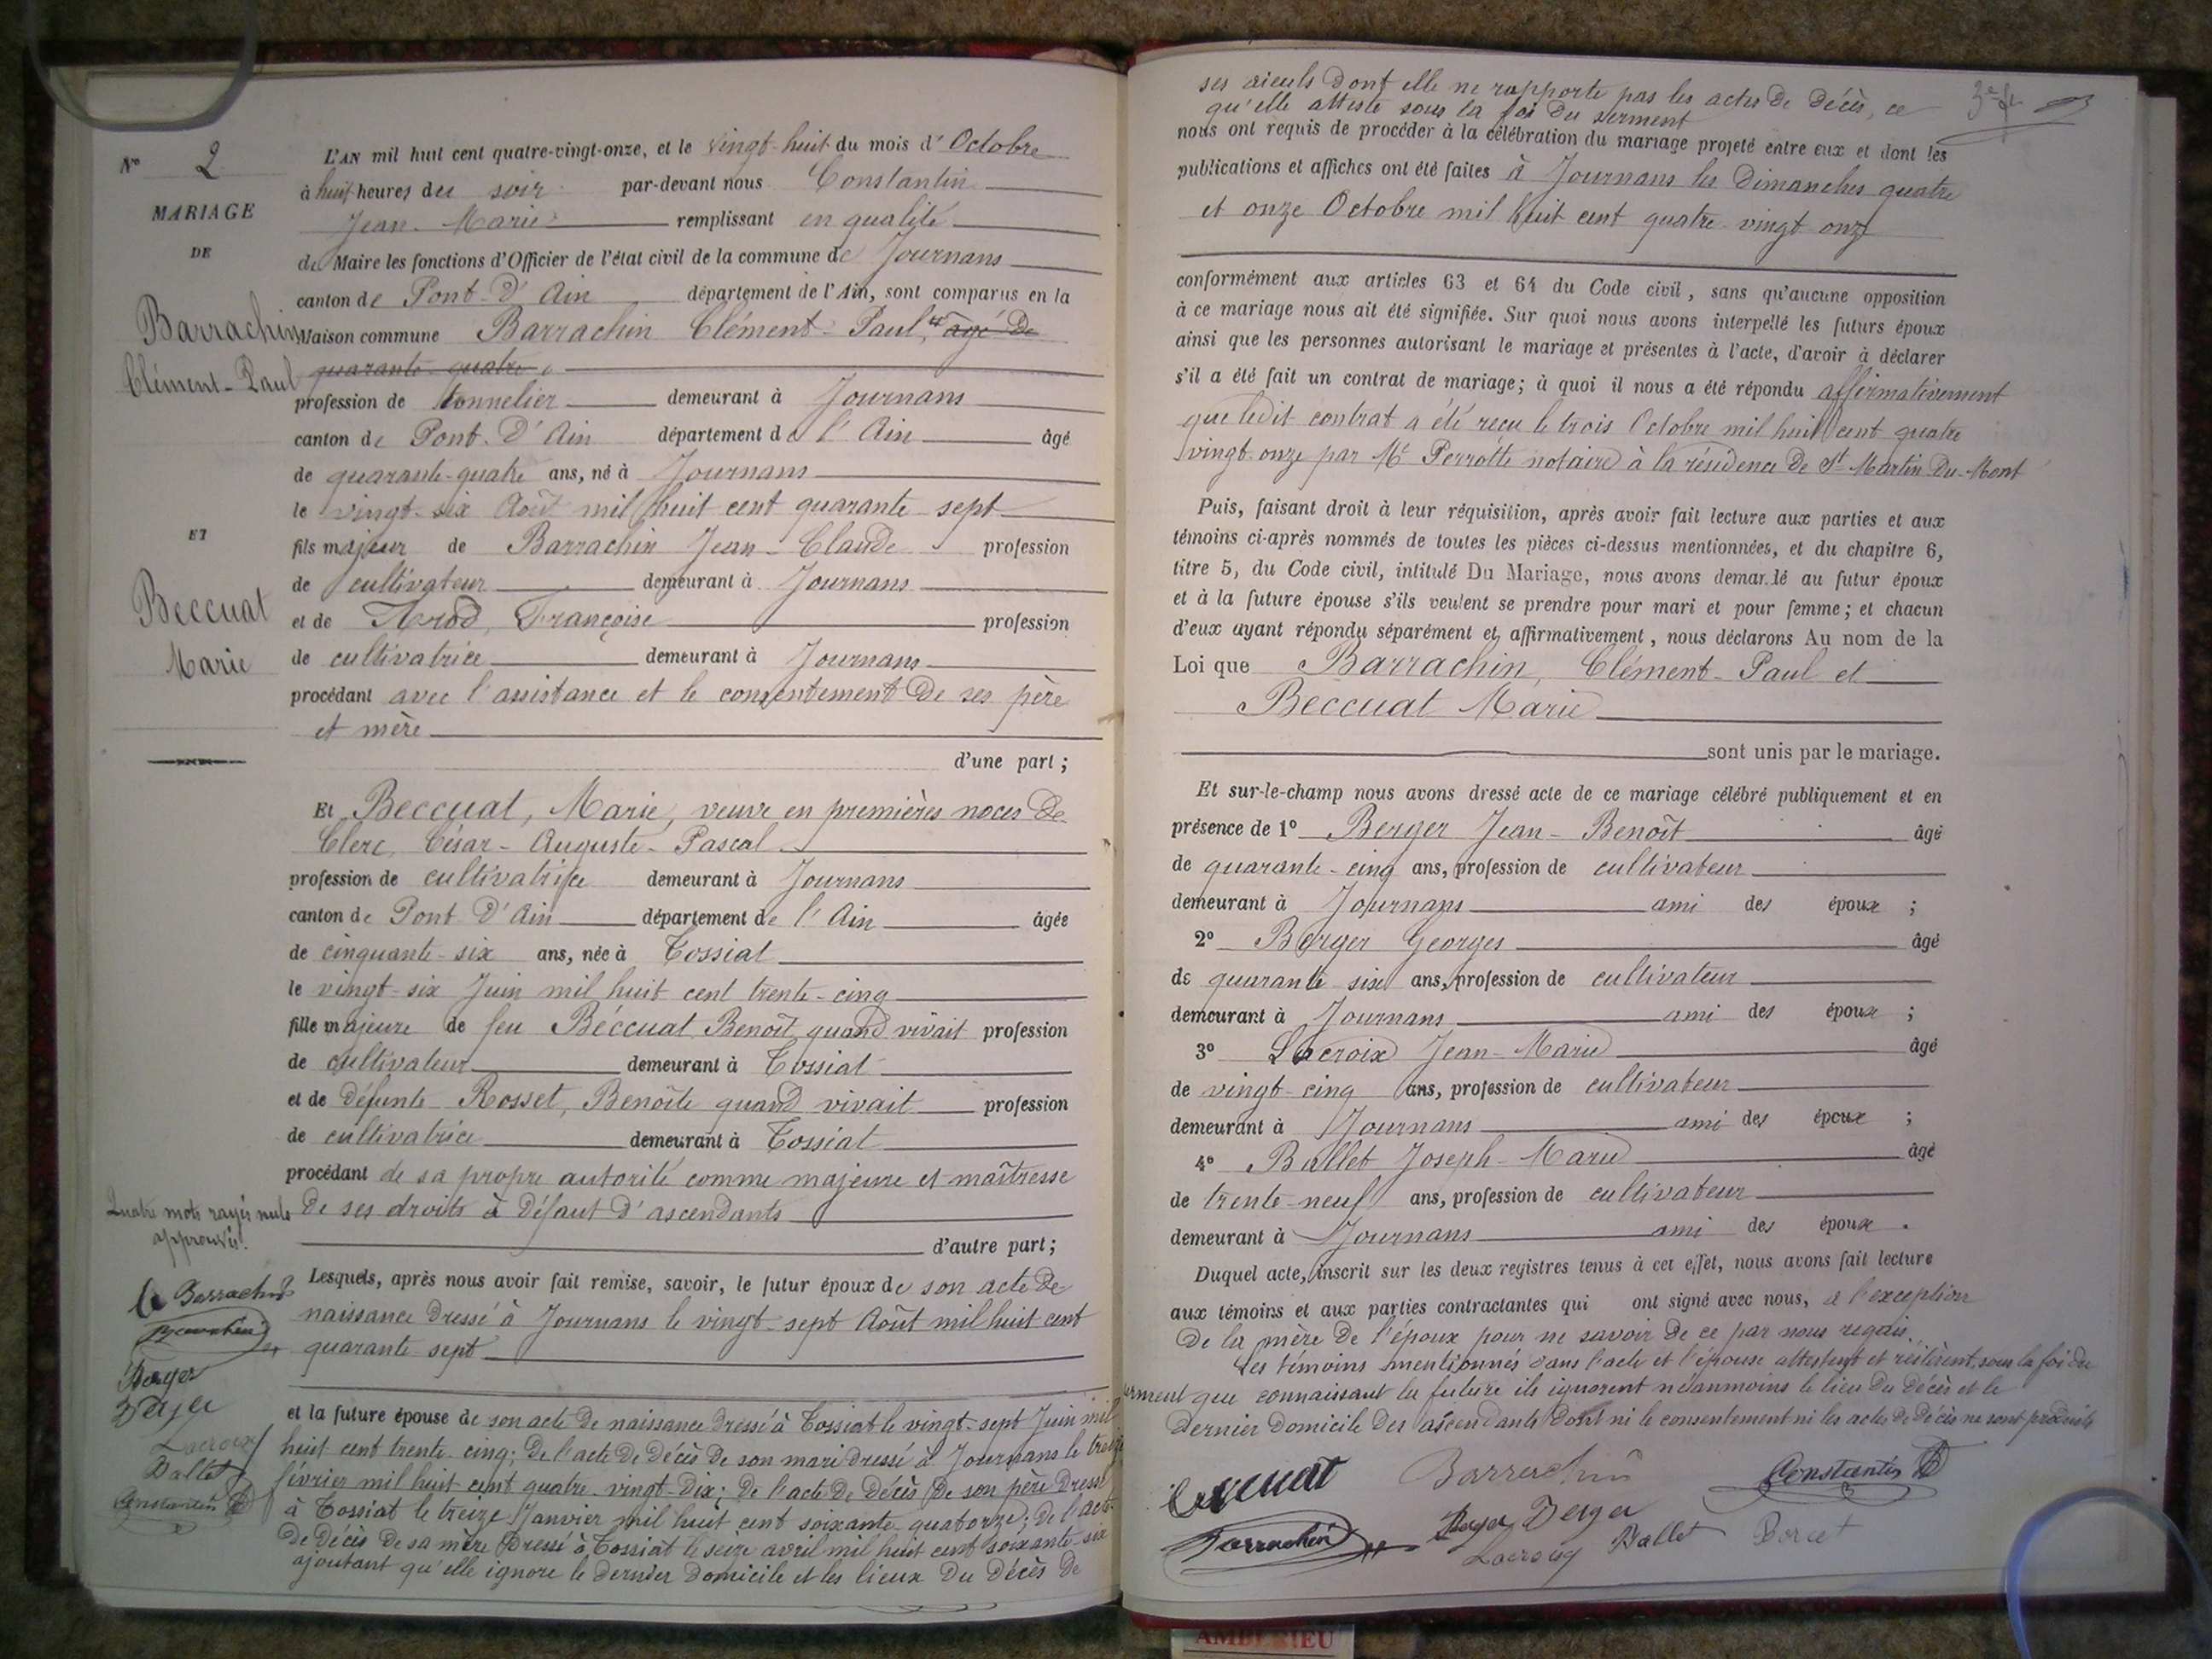 N° 2
MARIAGE
DE
Barrachin
Clément-Paul
ET
Beccuat
Marie
L'AN mil huit cent quatre-vingt-onze, et le vingt-huit du mois d'Octobre
à huit heures du soir par-devant nous Constantin
Jean-Marie remplissant en qualité
de Maire les fonctions d'Officier de l'état civil de la commune de Journans
canton de Pont-d'Ain département de l'Ain, sont comparus en la
Maison commune Barrachin Clément-Paul, âgé de
quarante-quatre
profession de tonnelier demeurant à Journans
canton de Pont-d'Ain département de l'Ain âgé
de quarante-quatre ans, né à Journans
le vingt-six Août mil huit cent quarante-sept
fils majeur de Barrachin Jean-Claude profession
de cultivateur demeurant à Journans
et de Arod, Françoise profession
de cultivatrice demeurant à Journans
procédant avec l'assistance et le consentement de ses père
et mère
d'une part;
Et Beccuat, Marie, veuve en premières noces de
Clerc, César-Auguste-Pascal
profession de cultivatrice demeurant à Journans
canton de Pont d'Ain département de l'Ain âgée
de cinquante-six ans, née à Tossiat
le vingt-six Juin mil huit cent trente-cinq
fille majeure de feu Béccuat Benoît quand vivait profession
de cultivateur demeurant à Tossiat
et de défunte Rosset, Benoîte quand vivait profession
de cultivatrice demeurant à Tossiat
procédant de sa propre autorité comme majeure et maîtresse
de ses droits à défaut d'ascendants
d'autre part;
Quatre mots rayés nuls
approuvés.
Lesquels, après nous avoir fait remise, savoir, le futur époux de son acte de
naissance dressé à Journans le vingt-sept Août mil huit cent
quarante sept
et la future épouse de son acte de naissance dressé à Tossiat le vingt-sept Juin mil
huit cent trente-cinq; de l'acte de décès de son mari dressé à Journans le treize
février mil huit cent quatre-vingt-dix; de l'acte de décès de son père dressé
à Tossiat le treize Janvier mil huit cent soixante-quatorze; de l'acte
de décès de sa mère dressé à Tossiat le seize avril mil huit cent soixante-six
ajoutant qu'elle ignore le dernier domicile et les lieux du décès de
Barrachin
Barrachin
Berger
Berger
Lacroix
Ballet
Constantin
ses aïeuls dont elle ne rapporte pas les actes de décès, ce
qu'elle atteste sous la foi du serment
nous ont requis de procéder à la célébration du mariage projeté entre eux et dont les
publications et affiches ont été faites à Journans les Dimanches quatre
et onze Octobre mil huit cent quatre-vingt onze
conformément aux articles 63 et 64 du Code civil, sans qu'aucune opposition
à ce mariage nous ait été signifiée. Sur quoi nous avons interpellé les futurs époux
ainsi que les personnes autorisant le mariage et présentes à l'acte, d'avoir à déclarer
s'il a été fait un contrat de mariage; à quoi il nous a été répondu affirmativement
que ledit contrat a été reçu le trois Octobre mil huit cent quatre
vingt-onze par Me Perrotte notaire à la résidence de St-Martin-du-Mont
Puis, faisant droit à leur réquisition, après avoir fait lecture aux parties et aux
témoins ci-après nommés de toutes les pièces ci-dessus mentionnées, et du chapitre 6,
titre 5, du Code civil, intitulé Du Mariage, nous avons demandé au futur époux
et à la future épouse s'ils veulent se prendre pour mari et pour femme; et chacun
d'eux ayant répondu séparément et affirmativement, nous déclarons Au nom de la
Loi que Barrachin, Clément-Paul et
Beccuat Marie
sont unis par le mariage.
Et sur-le-champ nous avons dressé acte de ce mariage célébré publiquement et en
présence de 1° Berger Jean-Benoît âgé
de quarante-cinq ans, profession de cultivateur
demeurant à Journans ami des époux;
2° Berger Georges âgé
de quarante six ans, profession de cultivateur
demeurant à Journans ami des époux;
3° Lacroix Jean-Marie âgé
de vingt-cinq ans, profession de cultivateur
demeurant à Journans ami des époux;
4° Ballet Joseph-Marie âgé
de trente-neuf ans, profession de cultivateur
demeurant à Journans ami des époux.
Duquel acte, inscrit sur les deux registres tenus à cet effet, nous avons fait lecture
aux témoins et aux parties contractantes qui ont signé avec nous, à l'exception
de la mère de l'époux pour ne savoir de ce par nous requis.
Les témoins mentionnés dans l'acte et l'épouse attestent et réitèrent, sous la foi du
serment que connaissant la future ils ignorent néanmoins le lieu du décès et le
dernier domicile des ascendants dont ni le consentement ni les actes de décès ne sont produits
Barrachin Constantin
Barrachin Berger Berger
Lacroix Ballet
AMBERIEU